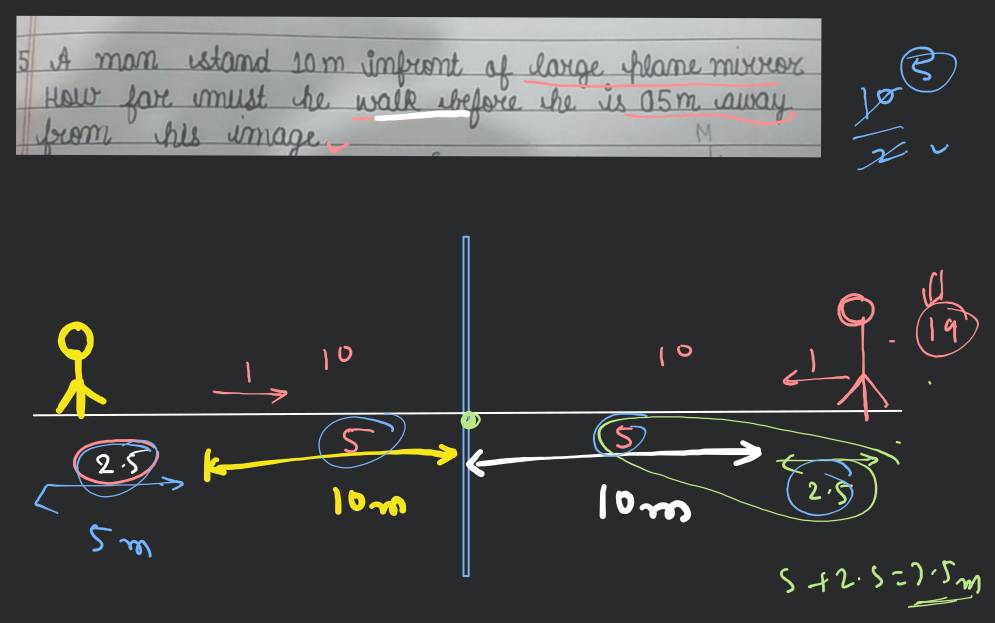 5 A man stand 10m infront of large plane mirror
How far must he walk before he is 05m away
from his image
M
5
10
2
19
1 10 10 1
2.5 5 5
10m 10m 2.5
5 m
5 + 2.5 = 7.5 m